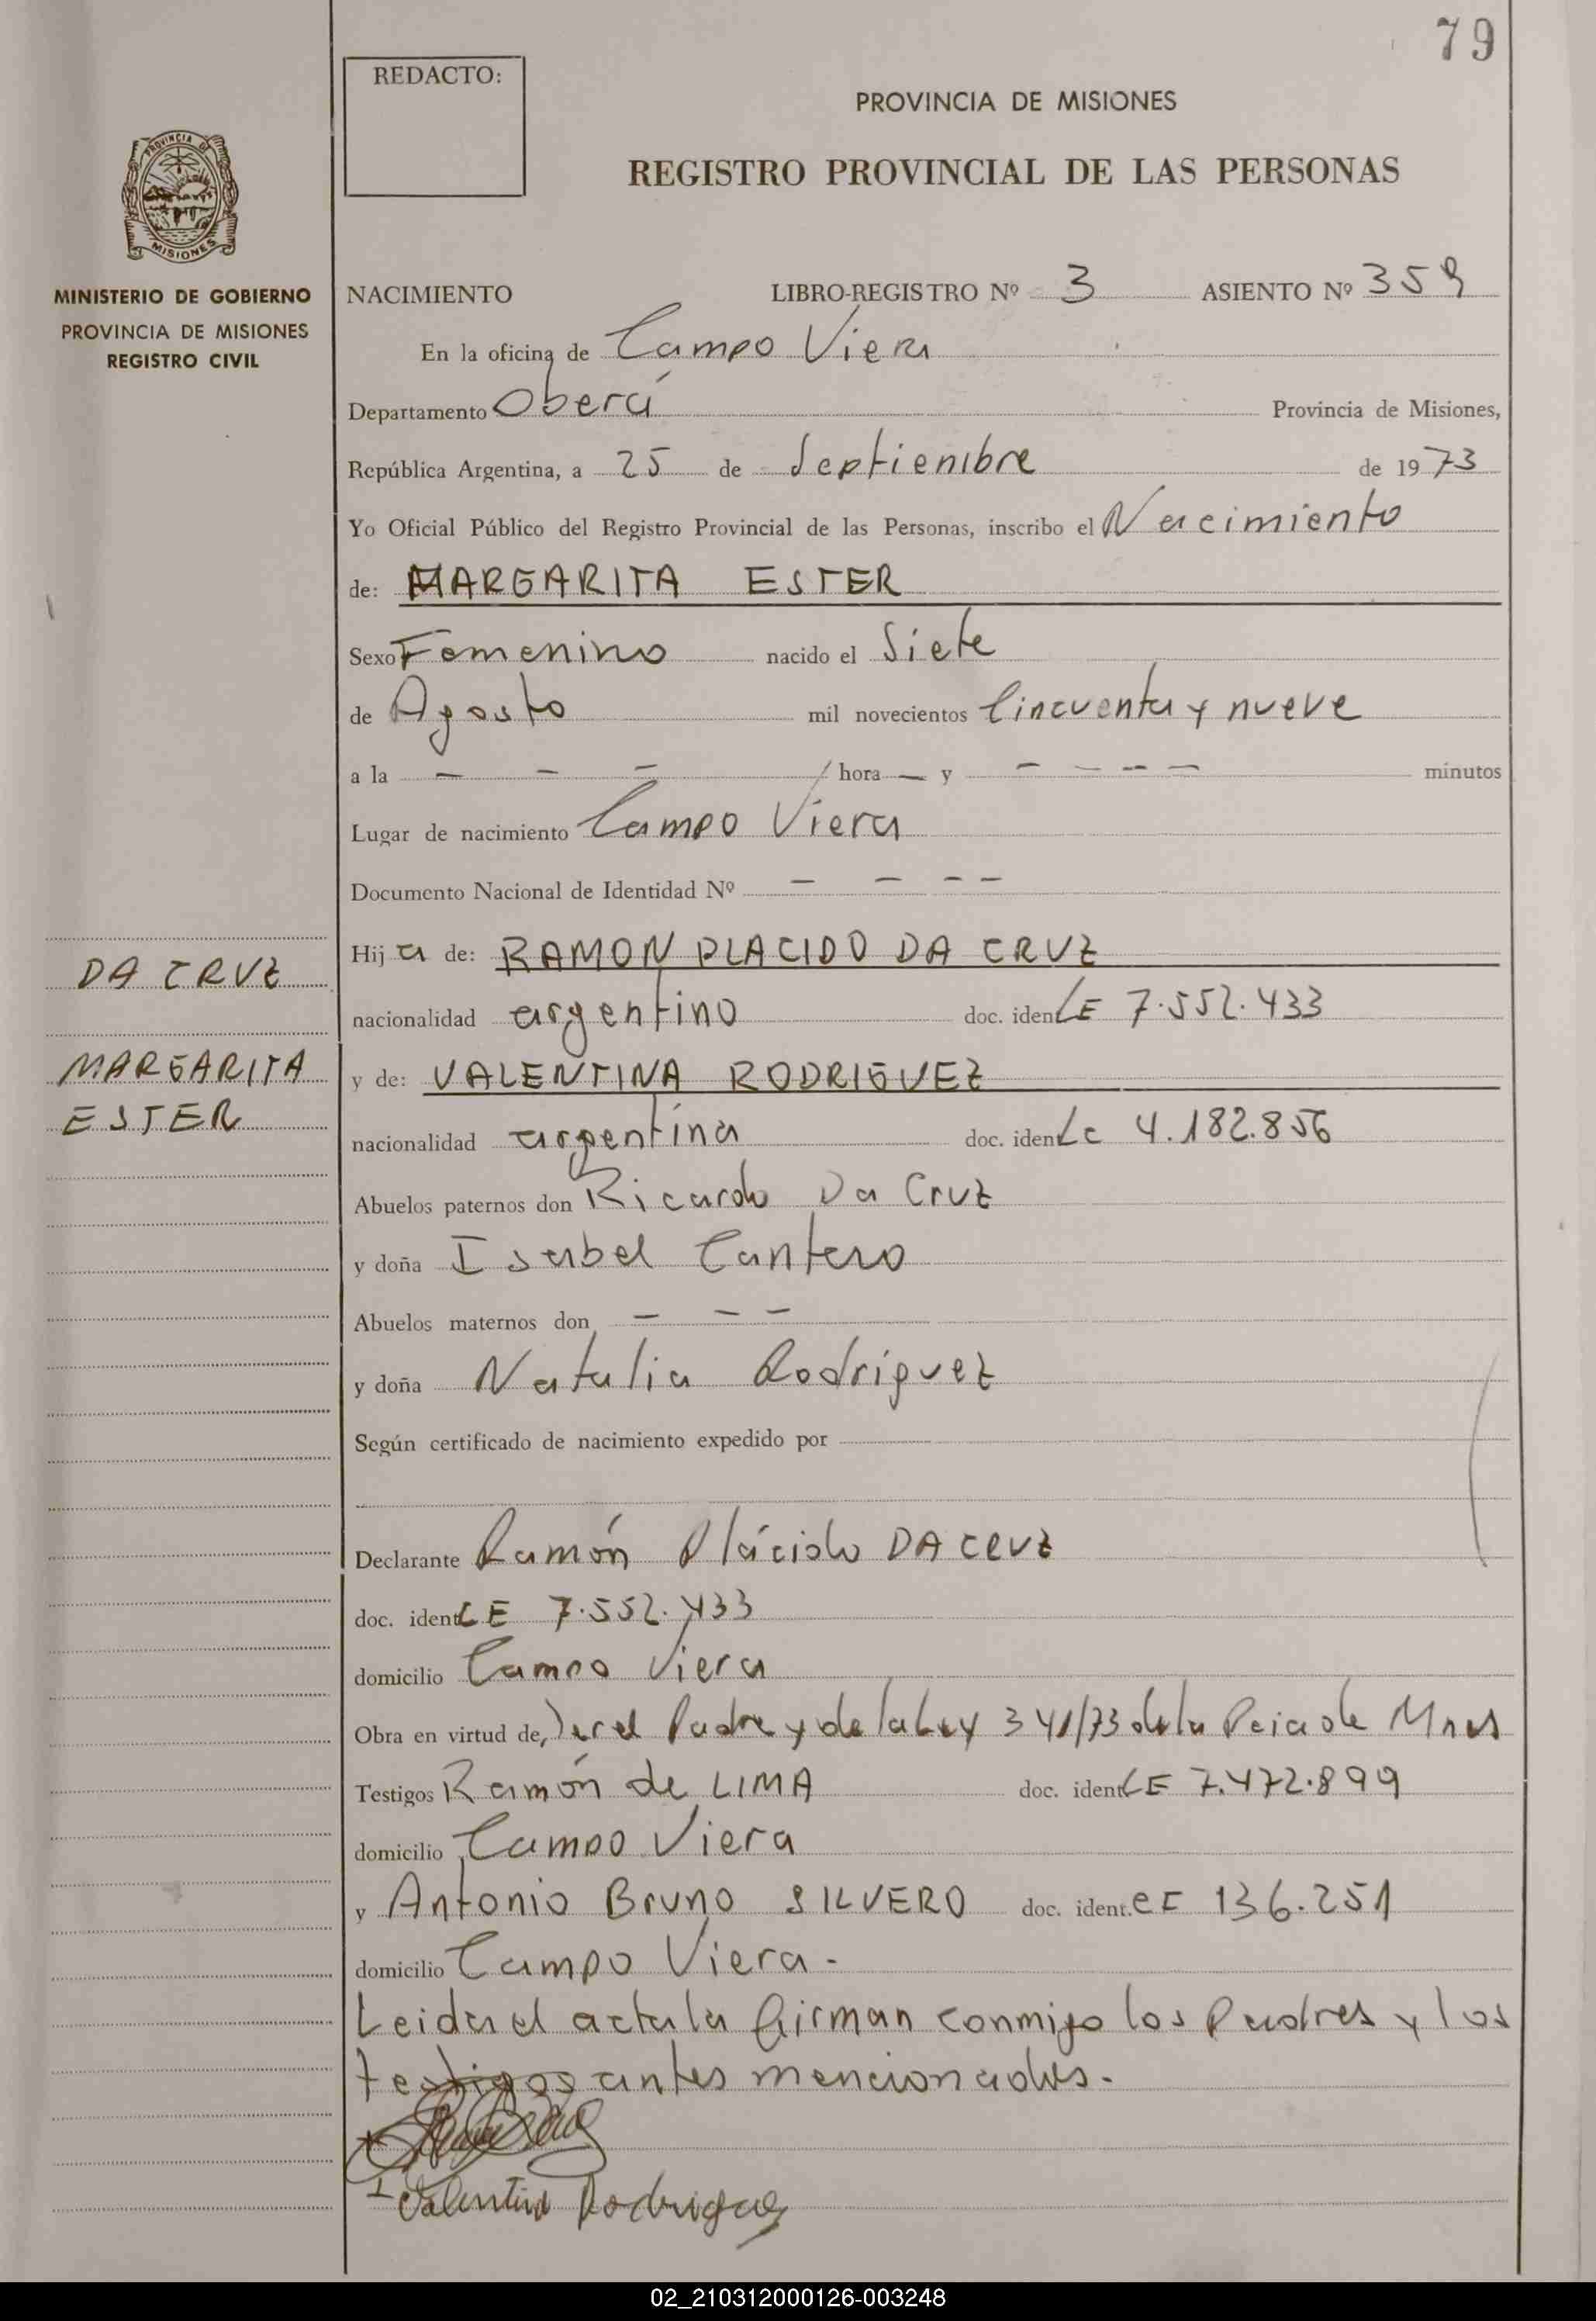 79
REDACTO:
PROVINCIA DE MISIONES
REGISTRO PROVINCIAL DE LAS PERSONAS
PROVINCIA DE
MISIONES
MINISTERIO DE GOBIERNO
PROVINCIA DE MISIONES
REGISTRO CIVIL
NACIMIENTO LIBRO-REGISTRO Nº 3 ASIENTO Nº 359
En la oficina de Campo Viera
Departamento Oberá Provincia de Misiones,
República Argentina, a 25 de Septiembre de 1973
Yo Oficial Público del Registro Provincial de las Personas, inscribo el Nacimiento
de: MARGARITA ESTER
Sexo Femenino nacido el Siete
de Agosto mil novecientos Cincuenta y nueve
a la — — — / hora — y — — — — minutos
Lugar de nacimiento Campo Viera
Documento Nacional de Identidad Nº — — — —
Hija de: RAMON PLACIDO DA CRUZ
DA CRUZ
nacionalidad argentino doc. iden LE 7.552.433
MARGARITA
y de: VALENTINA RODRIGUEZ
ESTER
nacionalidad argentina doc. iden Lc 4.182.856
Abuelos paternos don Ricardo Da Cruz
y doña Isabel Cantero
Abuelos maternos don — — —
y doña Natalia Rodríguez
Según certificado de nacimiento expedido por
Declarante Ramón Plácido DA CRUZ
doc. ident LE 7.552.433
domicilio Campo Viera
Obra en virtud de, Ser el Padre y de la Ley 341/73 de la Pcia de Mnes
Testigos Ramón de LIMA doc. ident LE 7.472.899
domicilio Campo Viera
y Antonio Bruno SILVERO doc. ident. CI 136.251
domicilio Campo Viera.-
Leida el acta la firman conmigo los Padres y los
testigos antes mencionados.-
Valentina Rodriguez
02_210312000126-003248